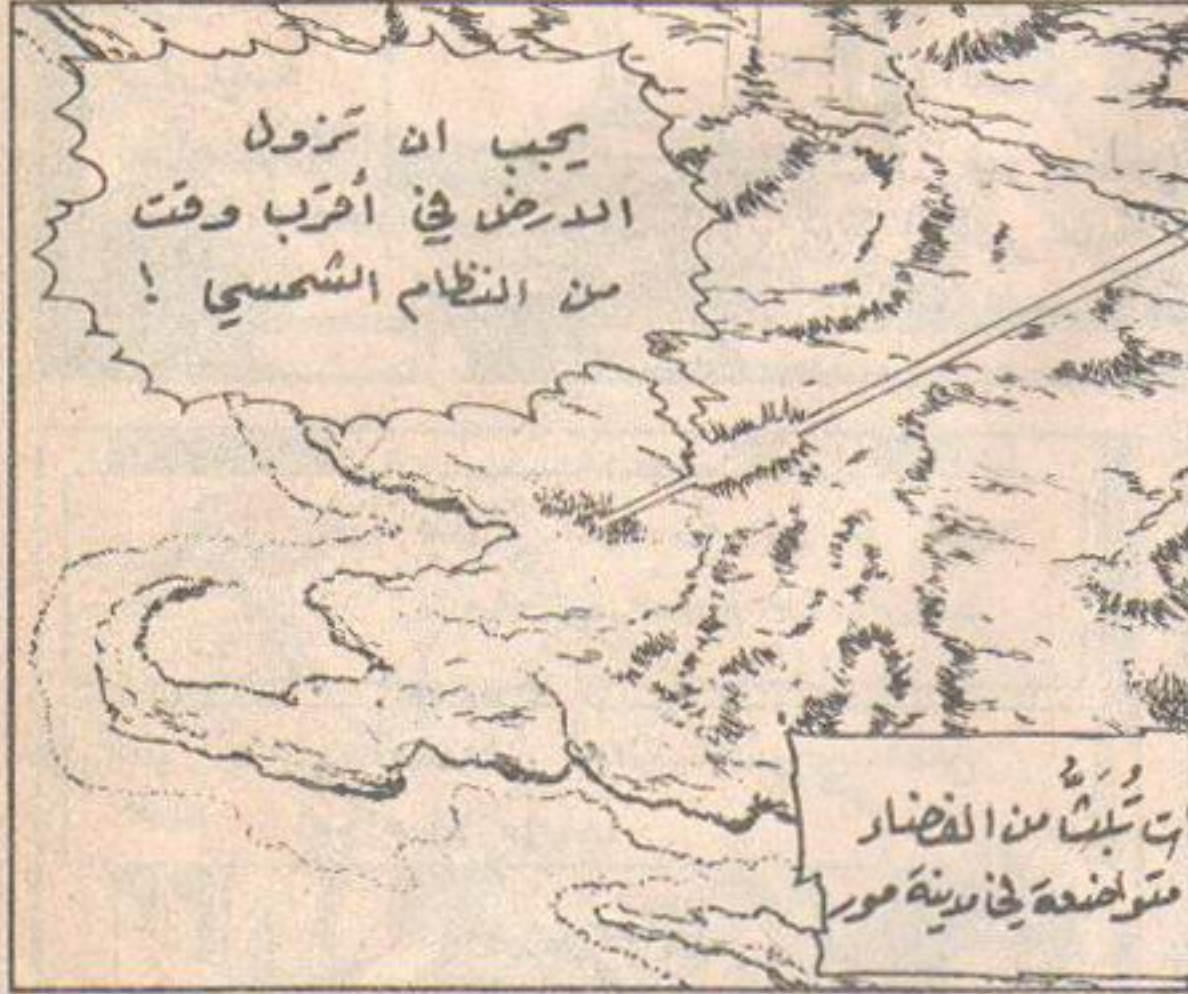 يجب ان تزول
الارض في أقرب وقت
من النظام الشمسي !
ات تُبَثُّ من الفضاء
متواضعة في مدينة مور